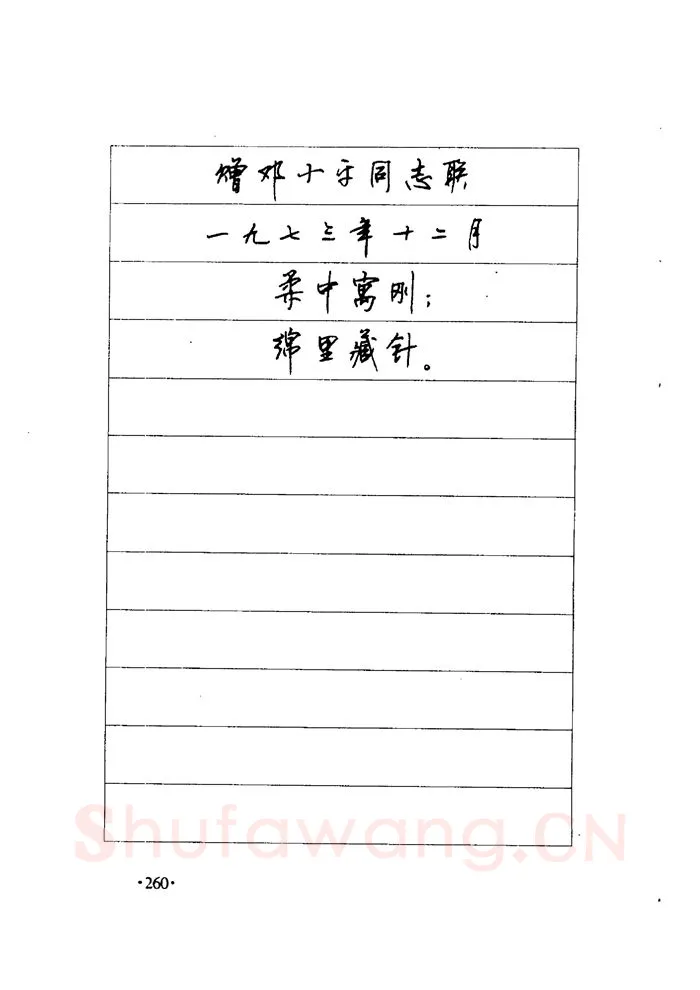 赠邓小平同志联
一九七三年十二月
柔中寓刚;
绵里藏针。
Shufawang.CN
·260·